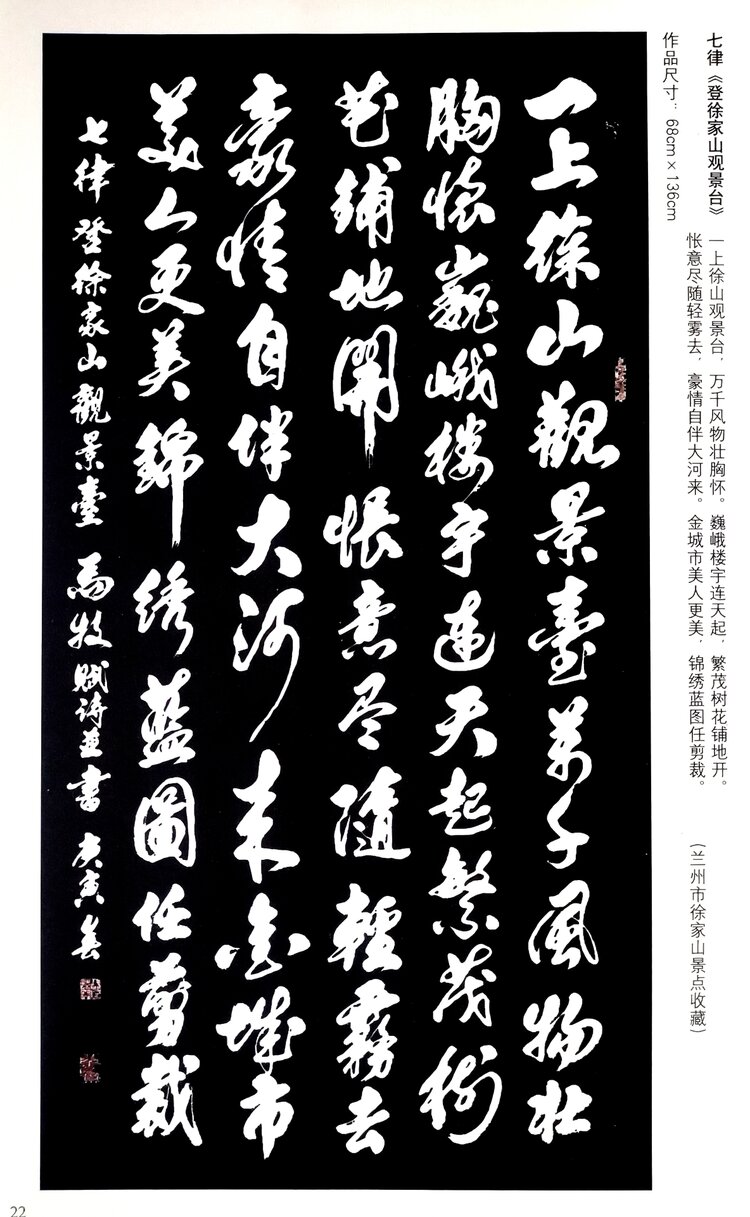 七律《登徐家山观景台》 一上徐山观景台，万千风物壮胸怀。巍峨楼宇连天起，繁茂树花铺地开。
怅意尽随轻雾去，豪情自伴大河来。金城市美人更美，锦绣蓝图任剪裁。
作品尺寸：68cm×136cm
（兰州市徐家山景点收藏）
一上徐山觀景臺萬千風物壯
胸懷巍峨楼宇连天起繁茂樹
花鋪地開悵意尽隨輕霧去
豪情自伴大河来金城市
美人更美錦绣藍圖任剪裁
七律登徐家山觀景臺 馬牧賦诗并書 庚寅春
22